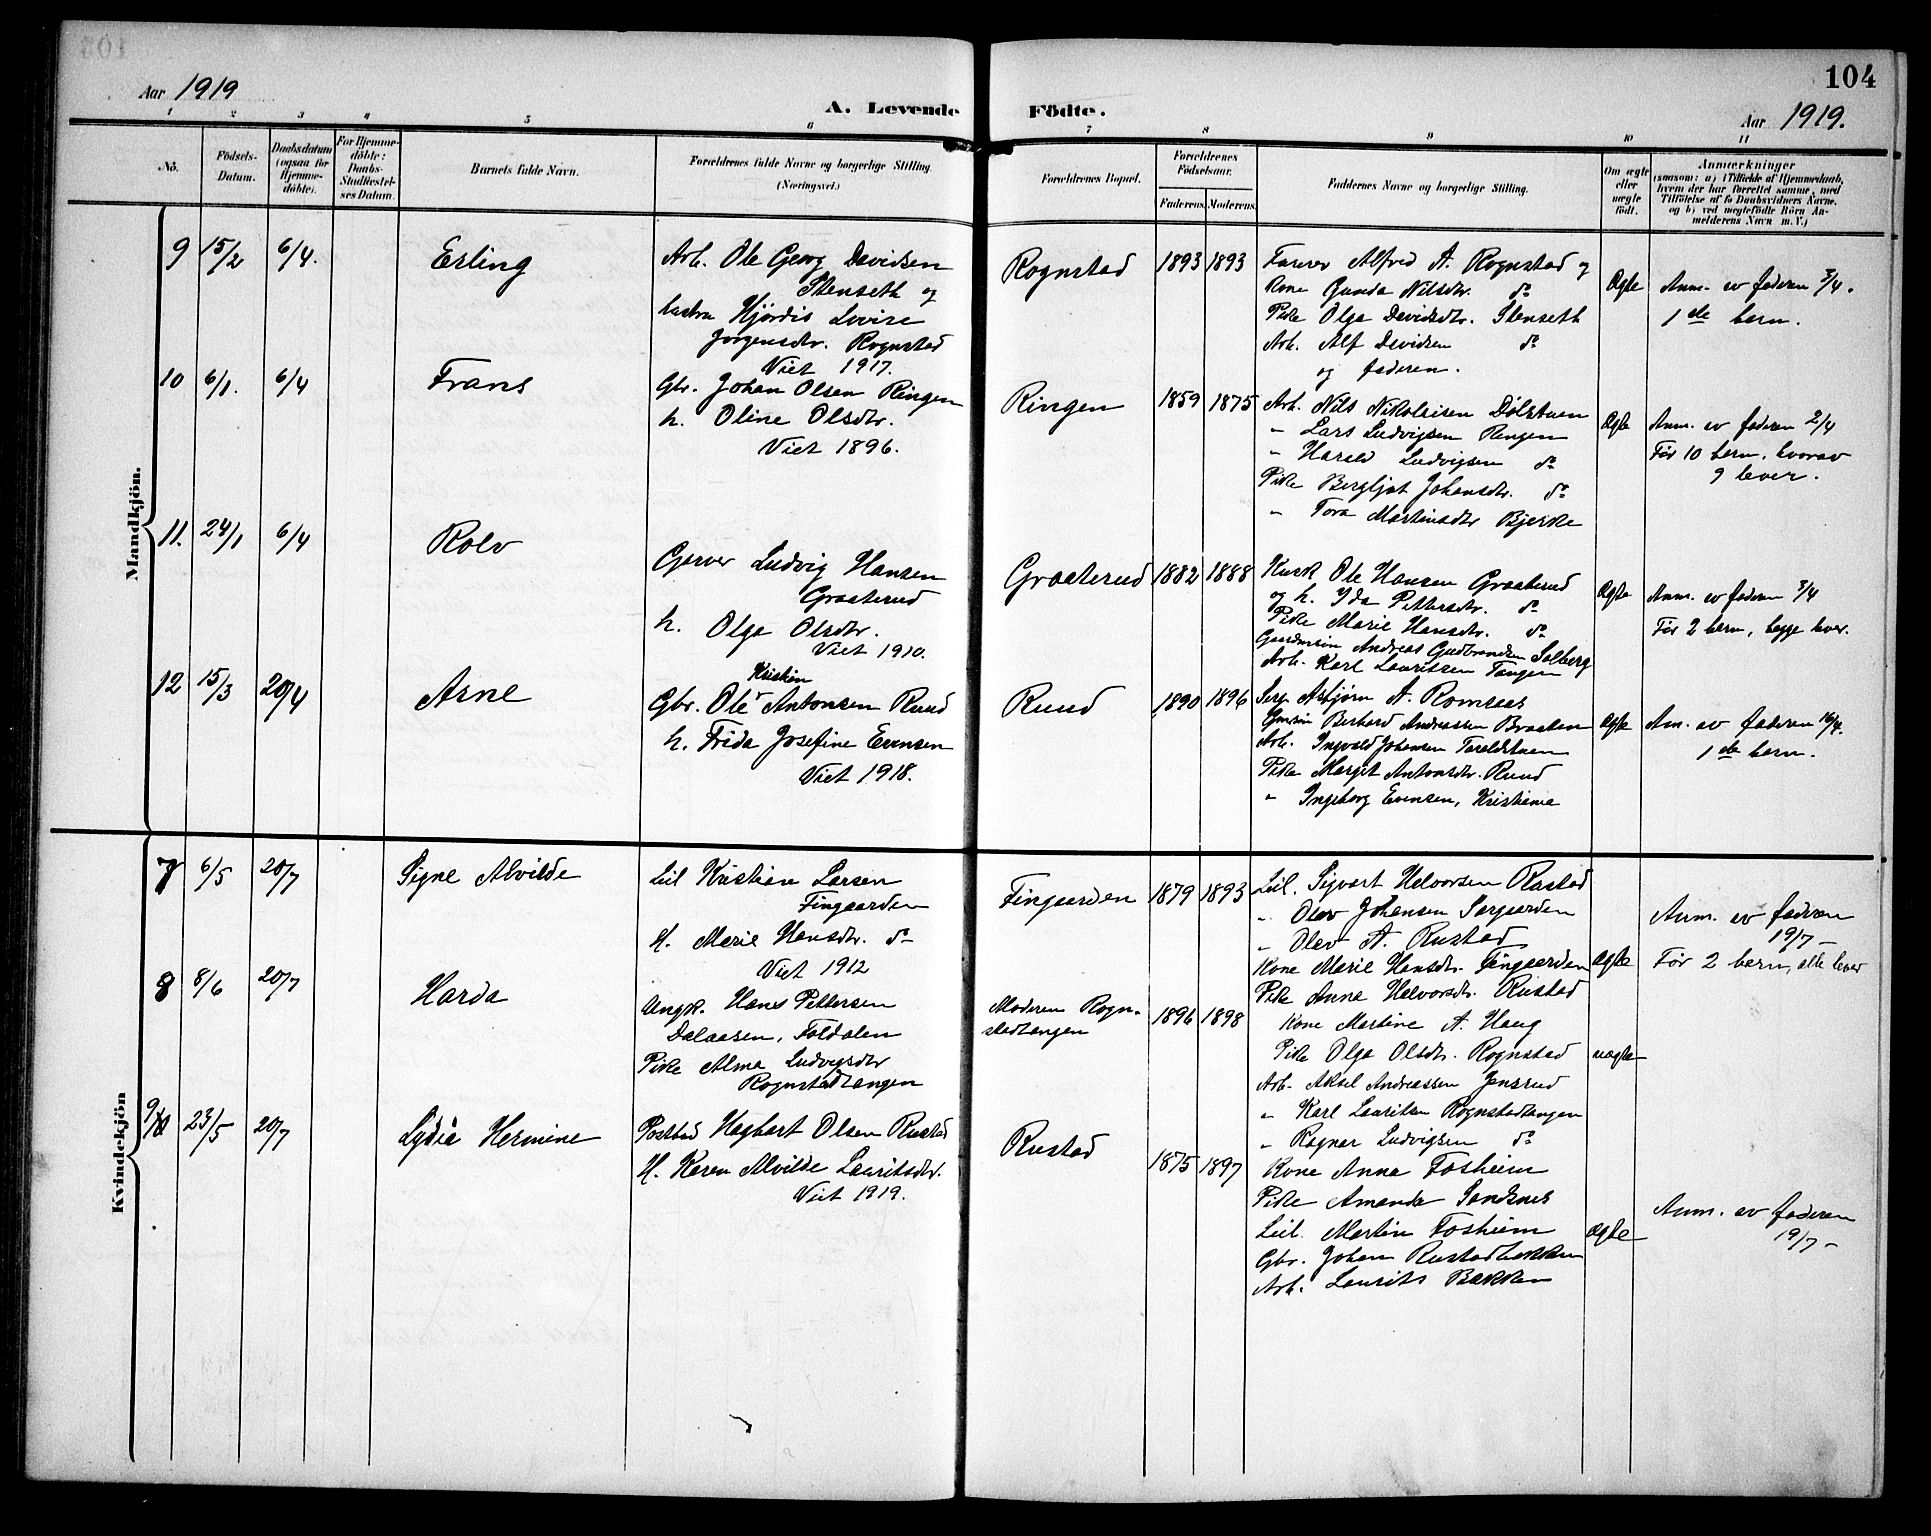 104
Aar 1919
A. Levende Födte.
Aar 1919.
1 2 3 4 5 6 7 8 9 10 11
No.
Födsels-
Datum.
Daabsdatum
(ogsaa for
Hjemme-
døbte).
For Hjemme-
döbte:
Daabs-
Stadfæstel-
ses Datum.
Barnets fulde Navn.
Forældrenes fulde Navne og borgerlige Stilling
(Næringsvei.)
Forældrenes Bopæl.
Forældrenes
Födselsaar.
Faderens. Moderens.
Faddernes Navne og borgerlige Stilling.
Om ægte
eller
uægte
födt.
Anmærkninger
(saasom: a) i Tilfælde af Hjemmedaab,
hvem der har forrettet samme, med
Tilföielse af to Daabsvidners Navne.
og b) ved uægtefödte Börn An-
melderens Navn m. V.)
Mandkjön.
9 15/2 6/4. Erling
Arb. Ole Georg Davidsen
Stenseth og
hustru Hjördis Lovise
Jørgensdtr. Rognstad
Viet 1917.
Rognstad 1893 1893
Farver Alfred A. Rognstad og
Kone Gunda Nilsdtr. do
Pike Olga Davidsdtr. Stenseth
Arb. Alf Davidsen do
og faderen.
Ægte
Anm. av faderen 3/4.
1de barn.
10 6/1. 6/4 Frans
Gbr. Johan Olsen Ringen
h. Oline Olsdtr.
Viet 1896.
Ringen 1859 1875
Arb. Nils Nikolaisen Dølstuen
" Lars Ludvigsen Ringen
" Harald Ludvigsen do
Pike Bergljot Johansdtr. do
" Tora Martinsdtr Bjerke
Ægte
Anm. av faderen 2/4
Før 10 barn, hvorav
9 lever.
11. 24/1 6/4 Rolv
Garver Ludvig Hansen
Graaterud
h. Olga Olsdtr.
Viet 1910.
Graaterud 1882 1888
Kusk Ole Hansen Graaterud
og h. Ida Pettersdtr. do
Pike Marie Hansdtr. do
Gaardmsøn Andreas Gudbrandsen Solberg
Arb. Karl Lauritsen Tangen
Ægte
Anm. av faderen 3/4
Før 2 barn, begge lever.
12 15/3 20/4 Arne
Kristian
Gbr. Ole Antonsen Ruud
h. Frida Josefine Evensen
Viet 1918.
Ruud 1890 1896
Serg. Asbjørn A. Romsaas
Gmsøn Berhard Andreassen Braaten
Arb. Ingvald Johansen Taraldstuen
Pike Margit Antonsdtr. Ruud
" Ingeborg Evensen, Kristiania
Ægte
Am. av faderen 16/4.
1de barn.
Kvindekjön
7 6/5 20/7 Signe Alvilde
Leil Kristian Larsen
Fingaarden
H. Marie Hansdtr. do
Viet 1912
Fingaarden 1879 1893
Leil. Sigvart Halvorsen Rustad
" Olav Johansen Sørgaarden
" Olav A. Rustad
Kone Marie Hansdtr. Fingaarden
Pike Anna Halvorsdtr. Rustad
Ægte
Anm. av faderen
19/7 -
Før 2 barn, alle lever
8 8/6 20/7 Harda
Ungk. Hans Pettersen
Dalaasen, Foldalen
Pike Alma Ludvigsdtr
Rognstadtangen
Moderen Rogn-
stadtangen 1896 1898
Kone Martine A. Haug
Pike Olga Olsdtr. Rognstad
Arb. Aksel Andreassen Jensrud
" Karl Lauritsen Rognstadtangen
" Ragnar Ludvigsen do
uægte
9 23/5 20/7 Lydia Hermine
Postbud Hagbart Olsen Rustad
H. Karen Alvilde Lauritsdtr.
Viet 1919.
Rustad 1875 1897
Kone Anna Fosheim
Pike Amanda Sandsnes
Leil. Martin Fosheim
Gbr. Johan Rustadbakken
Arb. Laurits Bakken
Ægte
Anm. av faderen
19/7 -